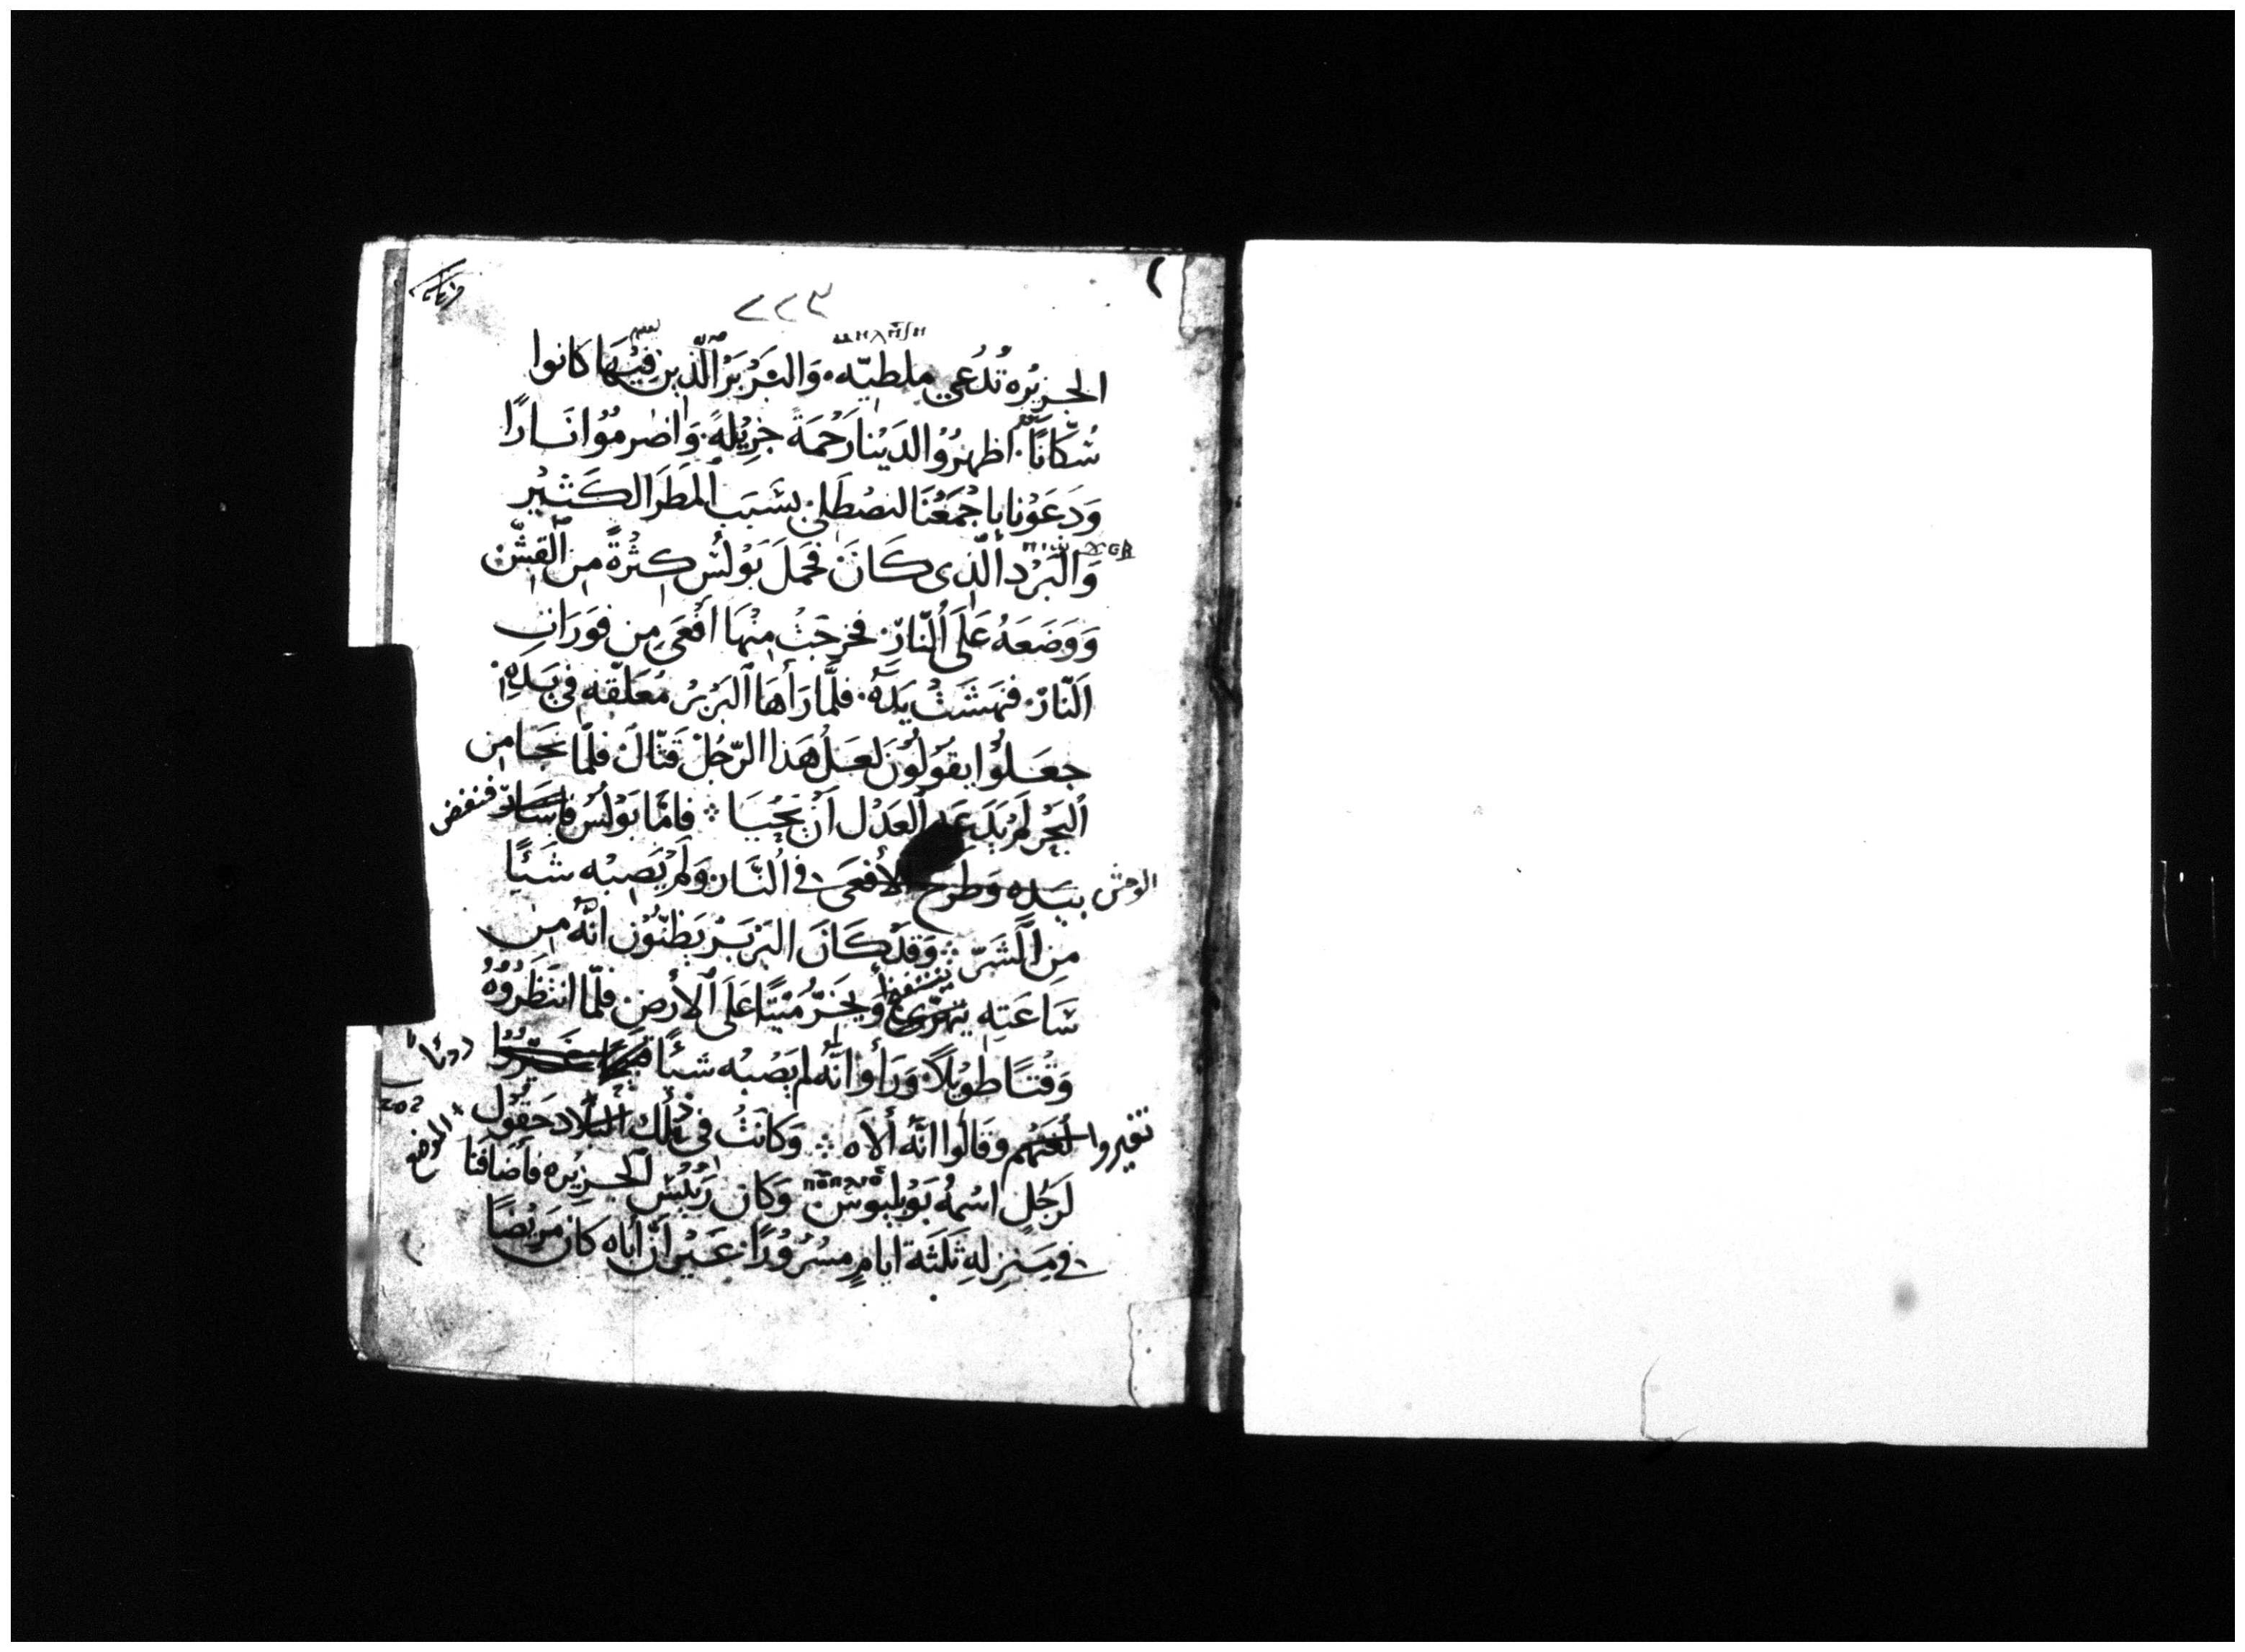 ٢٢٣
الجزيره تُدعي ملطيّه. وَالبَرْبَرْ الّذين فِيْهَا كانوا
سُكّانًا. اظهرُوْا لدَيْنا رَحْمَةً جَزِيْلهً. وَاضرمُوْا نَارًا
وَدَعَوْنا باجْمَعْنَا لنصْطَلي بسَبَب المَطَر الكَثيْر
وَالبَرْد الّذى كَانَ فحَمَلَ بَوْلسُ كِثْرةً مِن القَشّ
وَوَضَعَهُ عَلَى النّار. فخرجَتْ مِنْهَا أفْعَى مِن فوَرَانِ
النّار. فنهَشَتْ يَدَهُ. فلمَّا رَأهَا البَرْبرُ مُعَلّقه في يَدهِ
جعَلوُا يقوُلوُن لَعَلّ هَذا الرّجُلْ قتّالَ فلمّا نجَا مِن
البَحْر لَمْ يَدَعه العَدْل أنْ يَحْيَا ؞ فامّا بَوْلسُ فاشَار فنفض
الوحش بيَده وَطرَح الأفعَى في النَّار. وَلَمْ يَصِبْه شَيْأً
مِن الشَرّ ؞ وَقدْ كَانَ البَرْبَرْ يَظنّوُن انّهُ مِن
سَاعَتِه ينتفخ وَيخَرّ مَيْتًا عَلَى الأرض. فلمّا انتَظَرُوْهُ
وَقْتًا طوِيْلاً. وَرَأوا انّهُ لم يَصْبْه شيأً
تغيروا لغتهم وقَالوُا انّهُ ألاَه ؞ وَكانَتْ في ذلك البلاد حَقوُل
الموضع
لرَجُلٍ اسْمهُ بَوْبليوس. وَكان رَئِيْسُ الجزيره فأضافنَا
في مَنزلِهِ ثلثَة ايامٍ مسْرُوْرًا. غَيْر انّ أباه كان مَريْضًا